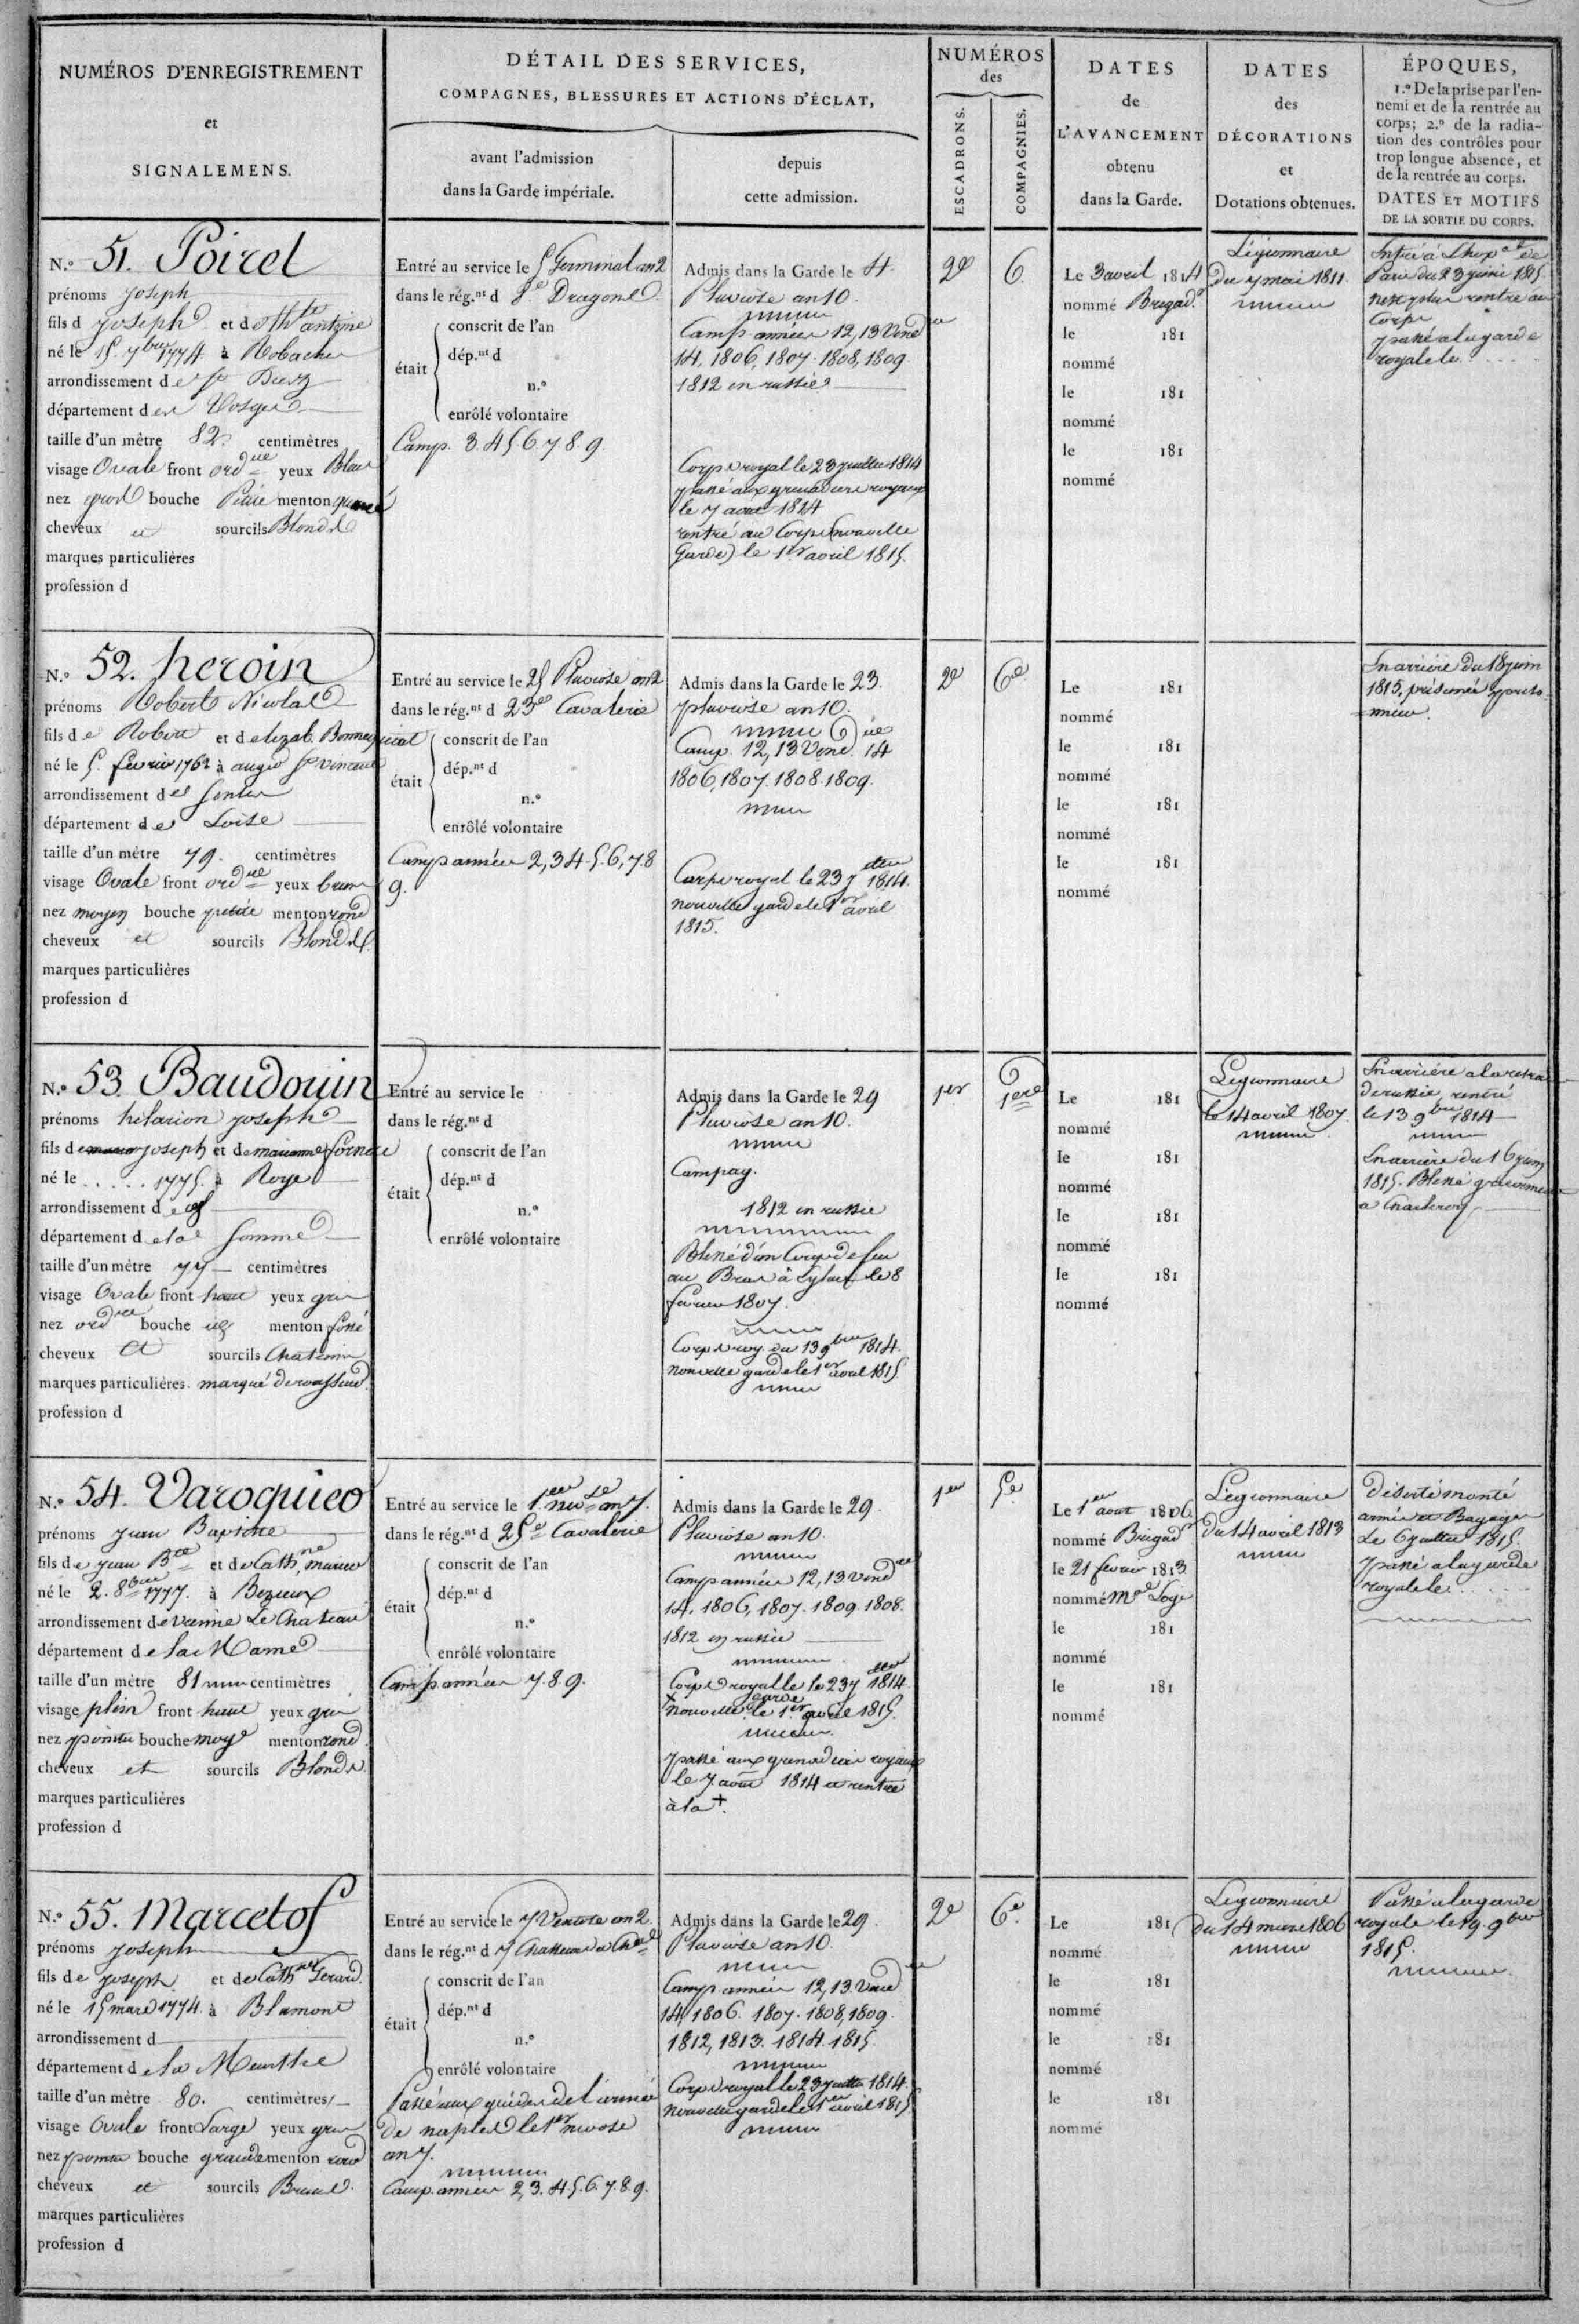 NUMÉROS D'ENREGISTREMENT
et
SIGNALEMENS.
DÉTAIL DES SERVICES,
COMPAGNES, BLESSURES ET ACTIONS D'ÉCLAT,
avant l'admission
dans la Garde impériale.
depuis
cette admission.
NUMÉROS
des
ESCADRONS.
COMPAGNIES.
DATES
de
L'AVANCEMENT
obtenu
dans la Garde.
DATES
des
DÉCORATIONS
et
Dotations obtenues.
ÉPOQUES,
1.º De la prise par l'en-
nemi et de la rentrée au
corps; 2.º de la radia-
tion des contrôles pour
trop longue absence, et
de la rentrée au corps.
DATES ET MOTIFS
DE LA SORTIE DU CORPS.
N.º 51. Poirel
prénoms joseph
fils d joseph et d antoine
né le 15. 7bre 1774 à Robache
arrondissement de St Diez
département des Vosges
taille d'un mètre 82. centimètres
visage Ovale front ordre yeux Bleus
nez gros bouche Petite menton
cheveux et sourcils Blonds
marques particulières
profession d
Entré au service le 5 Germinal an 2
dans le rég.nt d 8e Dragons
était
conscrit de l'an
dép.nt d
n.º
enrôlé volontaire
Camp. 3. 4 5. 6. 7. 8. 9.
Admis dans la Garde le 4
Pluviose an 10.
Camp années 12, 13 Vend re
14, 1806, 1807. 1808, 1809
1812 en russie
Corps royal le 23 juillet 1814
passé aux grenadiers royaux
le 7 aout 1814
rentré au Corps (nouvelle
Garde) le 1er avril 1815.
2e
6
Le 3 avril 1814
nommé Brigad.
le 181
nommé
le 181
nommé
le 181
nommé
Légionnaire
du 7 mai 1811.
Entré à Lhop al de
Paris du 23 juin 1815.
nest plus rentré au
Corps
passé a la garde
royale le
N.º 52. heroin
prénoms Robert Nicolas
fils de Robert et d elizab. Bonne
né le 5. fevrier 1762 à augé St vincent
arrondissement de Senlis
département de Loise
taille d'un mètre 79. centimètres
visage Ovale front ordre yeux bruns
nez moyen bouche petite menton rond
cheveux et sourcils Blonds
marques particulières
profession d
Entré au service le 25 Pluviose an 2
dans le rég.nt d 23e Cavalerie
était
conscrit de l'an
dép.nt d
n.º
enrôlé volontaire
Camp années 2, 3 4. 5. 6, 7. 8
9.
Admis dans la Garde le 23
pluviose an 10.
Camp. 12, 13. Vend. re 14
1806, 1807. 1808. 1809.
Corps royal le 23 1814.
nouvelle garde le 1er avril
1815.
2e
6e
Le 181
nommé
le 181
nommé
le 181
nommé
le 181
nommé
En arriere du 18 juin
1815, présumé
N.º 53. Baudouin
prénoms hilarion joseph
fils de joseph et de marianne fornere
né le ..... 1775. à Roye
arrondissement de
département de la Somme
taille d'un mètre 77 centimètres
visage Ovale front haut yeux gris
nez ordre bouche id menton fossé
cheveux et sourcils Chatains
marques particulières. marqué de rousseurs
profession d
Entré au service le
dans le rég.nt d
était
conscrit de l'an
dép.nt d
n.º
enrôlé volontaire
Admis dans la Garde le 29
Pluviose an 10.
Campag.
1812 en russie
Blessé d'un Coup de feu
au Bras à Eylau le 8
fevrier 1807.
Corps roy. du 13 9bre 1814.
nouvelle garde le 1er avril 1815
1er
1ere
Le 181
nommé
le 181
nommé
le 181
nommé
le 181
nommé
Legionnaire
le 14 avril 1807.
En arriere a la retraite
de russie, rentré
le 13 9bre 1814
En arriere du 16 juin
1815. Blessé
a Charleroy
N.º 54. Varoquieo
prénoms jean Baptiste
fils de jean Bte et de Cathne
né le 2. 8bre 1777. à Bezieux
arrondissement de vienne Le Chateau
département de la Marne
taille d'un mètre 81 centimètres
visage plein front haut yeux gris
nez pointu bouche moye menton rond
cheveux et sourcils Blonds
marques particulières
profession d
Entré au service le 1er nivse an 7.
dans le rég.nt d 25e Cavalerie
était
conscrit de l'an
dép.nt d
n.º
enrôlé volontaire
Camp années 7. 8. 9.
Admis dans la Garde le 29
Pluviose an 10.
Camp années 12, 13 Vend re
14. 1806, 1807. 1809. 1808.
1812 en russie
Corps royalle le 23 1814.
+ nouvelle garde le 1er avril 1815.
passé aux grenadiers royaux
le 7 aout 1814 a rentré
à la +.
1er
5e
Le 1er aout 1806
nommé Brigad
le 21 fevrier 1813
nommé Mal Logis
le 181
nommé
le 181
nommé
Legionnaire
du 14 avril 1813
Déserté monté
armé et Bagages
Le 6 juillet 1815.
passé a la garde
royale le
N.º 55. Marcelof
prénoms joseph
fils de joseph et de Cathne Gerard.
né le 15 mars 1774. à Blamont
arrondissement d
département de la Meurthe
taille d'un mètre 80. centimètres
visage Ovale front Large yeux gris
nez pointu bouche grande menton rond
cheveux et sourcils Bruns
marques particulières
profession d
Entré au service le 7 Ventose an 2.
dans le rég.nt d 7 Chasseurs a Chal
était
conscrit de l'an
dép.nt d
n.º
enrôlé volontaire
Passé aux guides de l'armée
de naples le 1er nivose
an 7.
Camp. années 2, 3. 4 5. 6. 7. 8. 9.
Admis dans la Garde le 29
Pluviose an 10.
Camp. années 12, 13. Vend re
14, 1806. 1807. 1808, 1809.
1812, 1813. 1814. 1815.
Corps royal le 23 juillet 1814.
nouvelle garde le 1er avril 1815
2e
6e.
Le 181
nommé
le 181
nommé
le 181
nommé
le 181
nommé
Legionnaire
du 14 mars 1806
Passé a la garde
royale le 19 9bre
1815.